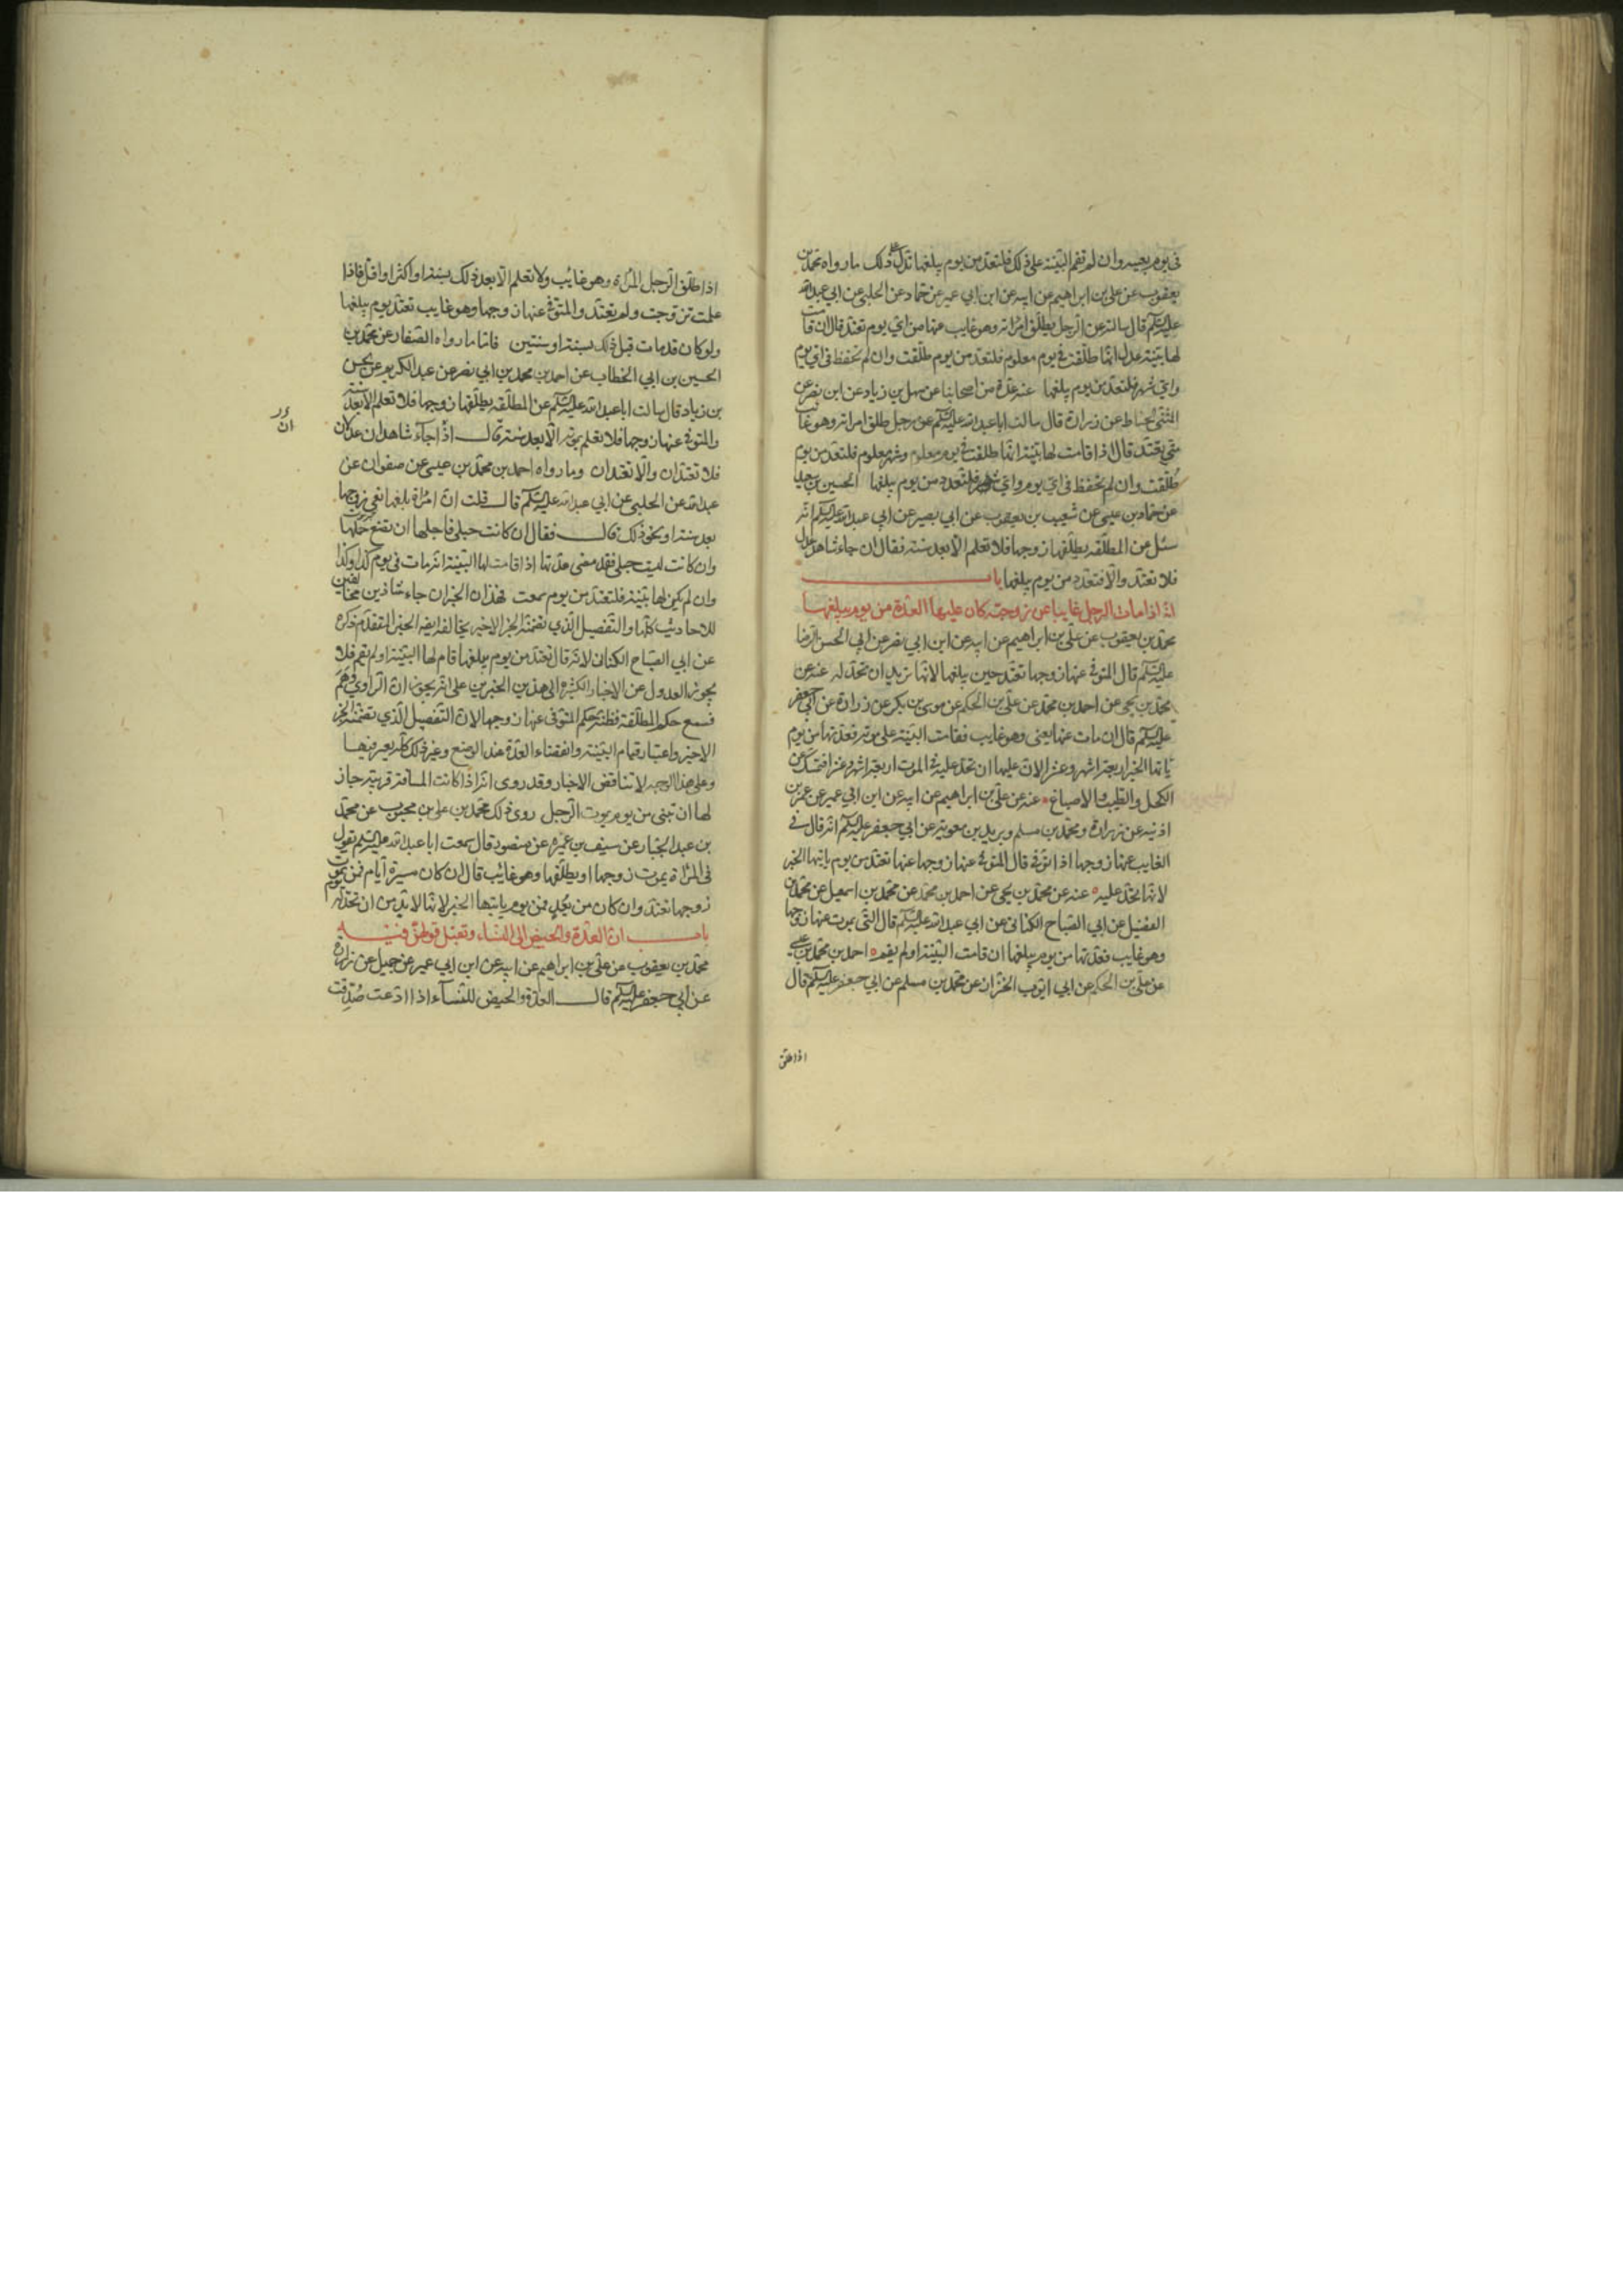 في يوم بعينه وان لم تقم البينة على ذلك فلتعتد من يوم يبلغها تدل على ذلك ما رواه محمد بن
يعقوب عن علي بن ابراهيم عن ابيه عن ابن ابي عمير عن حماد عن الحلبي عن ابي عبد الله
عليه السلم قال سالته عن الرجل يطلق امراته وهو غايب عنها من اي يوم تعتد قال ان قامت
لها بينة عدل انها طلقت في يوم معلوم فلتعتد من يوم طلقت وان لم تحفظ في اي يوم
واي شهر فلتعتد من يوم يبلغها عنه عن عدة من اصحابنا عن سهل بن زياد عن ابن ابي نصر عن
المثنى الحناط عن زرارة قال سالت ابا عبد الله عليه السلم عن رجل طلق امراته وهو غايب
متى تعتد قال اذا قامت لها بينة انها طلقت في يوم معلوم وشهر معلوم فلتعتد من يوم
طلقت وان لم تحفظ في اي يوم واي شهر فلتعتد من يوم يبلغها الحسين بن سعيد
عن حماد بن عيسى عن شعيب بن يعقوب عن ابي بصير عن ابي عبد الله عليه السلم انه
سئل عن المطلقه يطلقها زوجها فلا تعلم الا بعد سنة فقال ان جاء شاهدا عدل
فلا تعتد والا فتعتد من يوم يبلغها باب
انه اذا مات الرجل غايبا عن زوجته كان عليها العدة من يوم يبلغها
محمد بن يعقوب عن علي بن ابراهيم عن ابيه عن ابن ابي نصر عن ابي الحسن الرضا
عليه السلم قال المتوفى عنها زوجها تعتد حين يبلغها لانها تريد ان تحد له عنه عن
محمد بن يحيى عن احمد بن محمد عن علي بن الحكم عن موسى بن بكر عن زرارة عن ابي جعفر
عليه السلم قال ان مات عنها يعني وهو غايب فقامت البينة على موته فعدتها من يوم
ياتيها الخبر اربعة اشهر وعشرا لان عليها ان تحد عليه في الموت اربعة اشهر وعشرا فتمسك عن
الكحل والطيب والاصباغ عنه عن علي بن ابراهيم عن ابيه عن ابن ابي عمير عن عمر بن
اذنيه عن زرارة ومحمد بن مسلم وبريد بن معوية عن ابي جعفر عليه السلم انه قال في
الغايب عنها زوجها اذا توفي قال المتوفى عنها زوجها عنها تعتد من يوم ياتيها الخبر
لانها تحد عليه عنه عن محمد بن يحيى عن احمد بن محمد عن محمد بن اسمعيل عن محمد بن
الفضيل عن ابي الصباح الكناني عن ابي عبد الله عليه السلم قال التي يموت عنها زوجها
وهو غايب فعدتها من يوم يبلغها ان قامت البينة او لم يقم احمد بن محمد بن عيسى
عن علي بن الحكم عن ابي ايوب الخزاز عن محمد بن مسلم عن ابي جعفر عليه السلم قال
اذا طلق
اذا طلق الرجل المراة وهو غايب ولا تعلم الا بعد ذلك بسنة او اكثر او اقل فاذا
علمت تزوجت ولم تعتد والمتوفى عنها زوجها وهو غايب تعتد يوم يبلغها
ولو كان قد مات قبل ذلك بسنة او سنتين فاما ما رواه الصفار عن محمد بن
الحسين بن ابي الخطاب عن احمد بن محمد بن ابي نصر عن عبد الكريم عن الحسن
بن زياد قال سالت ابا عبد الله عليه السلم عن المطلقه يطلقها زوجها فلا تعلم الا بعد سنة
والمتوفى عنها زوجها فلا تعلم بموته الا بعد سنة قال اذا جاء شاهدان عدلان
فلا تعتدان والا تعتدان وما رواه احمد بن محمد بن عيسى عن صفوان عن
عبد الله عن الحلبي عن ابي عبد الله عليه السلم قال قلت ان امراة بلغها نعي زوجها
بعد سنة او نحو ذلك قال فقال ان كانت حبلى فاجلها ان تضع حملها
وان كانت ليست حبلى فقد مضى عدتها اذا قامت لها البينة انه مات في يوم كذا وكذا
وان لم يكن لها بينة فلتعتد من يوم سمعت فهذان الخبران جاء شاذين مخالفين
للاحاديث كلها والتفصيل الذي تضمنه الخبر الاخير يخالف ايضا الخبر المتقدم ذكره
عن ابي الصباح الكناني لانه قال تعتد من يوم يبلغها قام لها البينة او لم تقم فلا
يجوز العدول عن الاخبار الكثيرة الى هذين الخبرين على انه يجوز ان الراوي وهم
فسمع حكم المطلقة فظنه حكم المتوفى عنها زوجها لان التفصيل الذي تضمنه الخبر
الاخير واعتبار قيام البينة وانقضاء العدة عند الوضع وغير ذلك كله يعتبر فيها
وعلى هذا الوجه لا تناقض الاخبار وقد روى انه اذا كانت المسافة قريبة جاز
لها ان تبنى من يوم يموت الرجل روى ذلك محمد بن علي بن محبوب عن محمد
بن عبد الجبار عن سيف بن عميره عن منصور قال سمعت ابا عبد الله عليه السلم يقول
في المراة يموت زوجها او يطلقها وهو غايب قال ان كان مسيرة ايام فمن يوم يموت
زوجها تعتد وان كان من بعد فمن يوم ياتيها الخبر لانها لا بد من ان تحد له
باب ان العدة والحيض الى النساء وتقبل قولهن فيه
محمد بن يعقوب عن علي بن ابراهيم عن ابيه عن ابن ابي عمير عن جميل عن زرارة
عن ابي جعفر عليه السلم قال العدة والحيض للنسآء اذا ادعت صدقت